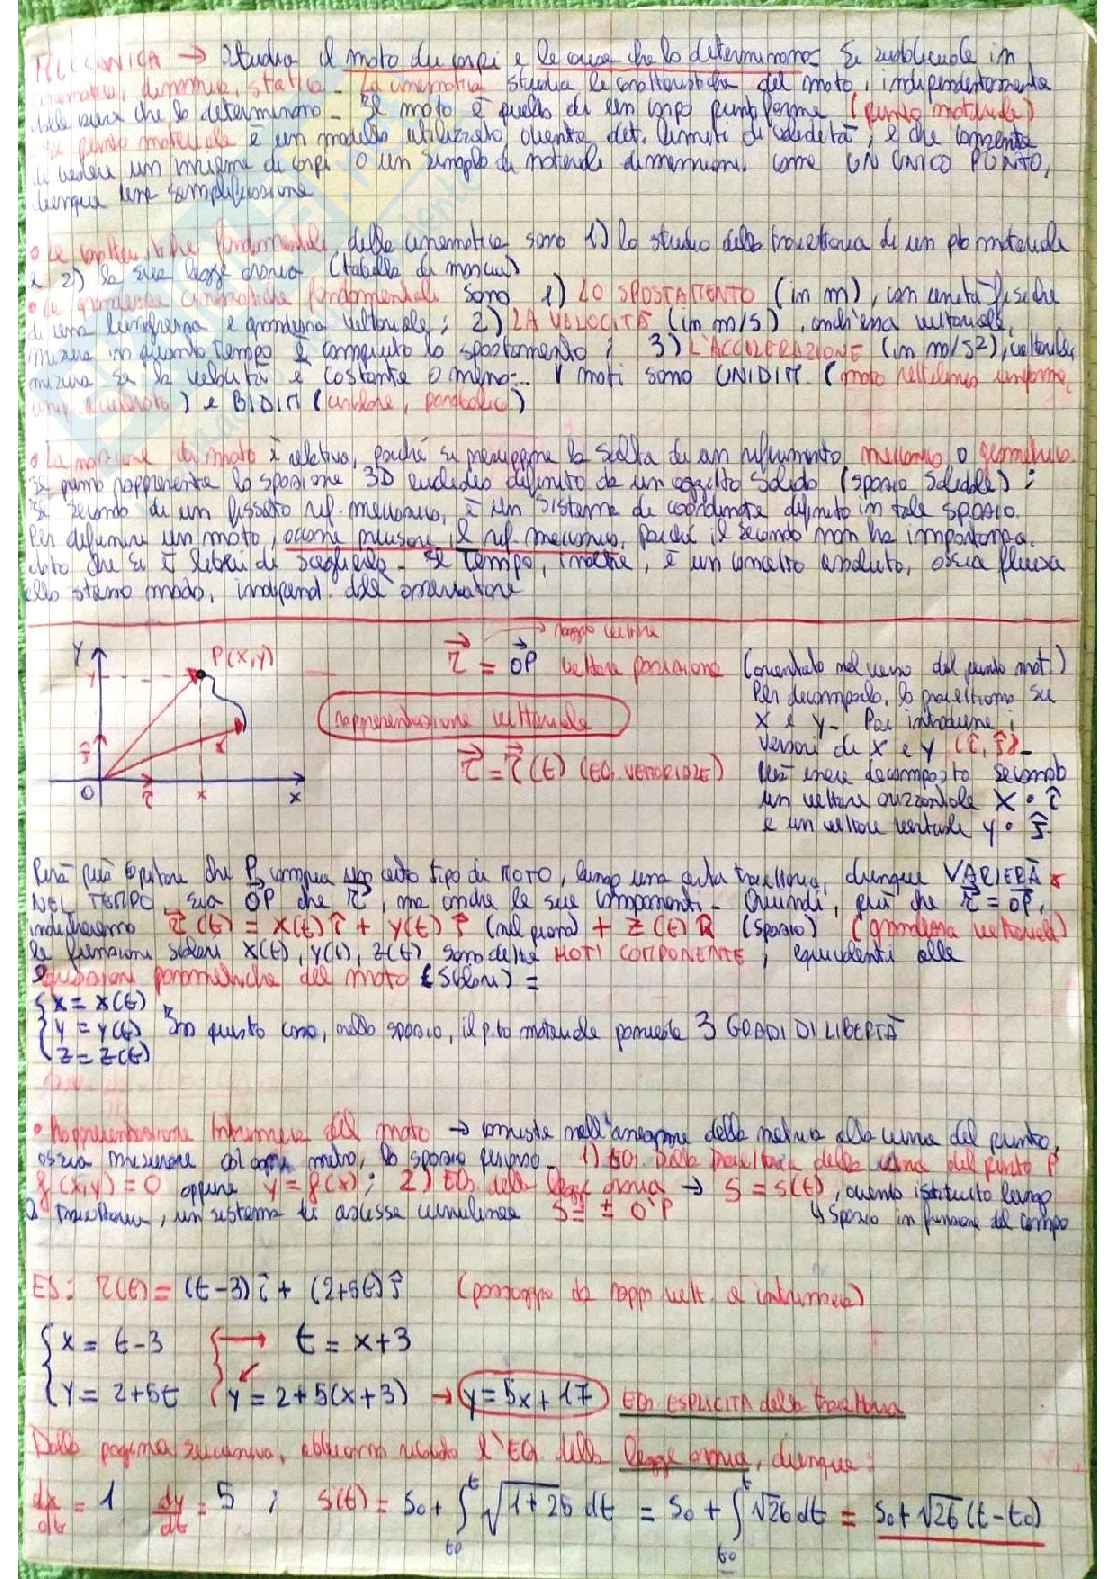 MECCANICA → Studia il moto dei corpi e le cause che lo determinano. Si suddivide in
cinematica, dinamica, statica. La cinematica studia le caratteristiche del moto, indipendentemente
dalle cause che lo determinano. Il moto è quello di un corpo puntiforme (punto materiale)
Il punto materiale è un modello utilizzato entro det. limiti di validità, e che consente
di vedere un insieme di corpi o un singolo di notevoli dimensioni come UN UNICO PUNTO,
dunque una semplificazione
• Le caratteristiche fondamentali della cinematica sono 1) lo studio della traiettoria di un pto materiale
e 2) la sua legge oraria (tabella di marcia)
• Le grandezze cinematiche fondamentali sono 1) LO SPOSTAMENTO (in m), con unità fisiche
di una lunghezza e grandezza vettoriale; 2) LA VELOCITÀ (in m/s), anch'essa vettoriale,
misura in quanto tempo è compiuto lo spostamento; 3) L'ACCELERAZIONE (in m/s2), vettoriale,
misura se la velocità è costante o meno... I moti sono UNIDIM. (moto rettilineo uniforme,
unif. accelerato) e BIDIM (circolare, parabolico)
• La nozione di moto è relativa, poiché si presuppone la scelta di un riferimento meccanico o geometrico.
Il primo rappresenta lo spazione 3D euclideo definito da un oggetto solido (spazio solidale);
Il secondo di un fissato rif. meccanico, è un sistema di coordinate definito in tale SPAZIO.
Per definire un moto, occorre precisare il rif. meccanico, poiché il secondo non ha importanza.
dato che si è liberi di sceglierlo. Il tempo, inoltre, è un concetto assoluto, ossia fluisce
allo stesso modo, indipend. dall'osservatore
Y P(X,Y) r = OP → raggio vettore vettore posizione (orientato nel verso del punto mat.)
Y Per decomporlo, lo proiettiamo su
rappresentazione vettoriale X e Y. Poi introduciamo i
versori di X e Y (î, ĵ).
ĵ r = r(t) (EQ. VETTORIALE) Verrà inoltre decomposto secondo
O î x X un vettore orizzontale X • î
e un vettore verticale y • ĵ
Però può capitare che P compia un certo tipo di MOTO, lungo una certa traiettoria, dunque VARIERÀ
NEL TEMPO, sia OP che r, ma anche le sue componenti. Quindi, più che r = OP,
indicheremo r(t) = X(t) î + Y(t) ĵ (nel piano) + Z(t) k (spazio) (grandezza vettoriale)
le funzioni scalari X(t), Y(t), Z(t) sono dette MOTI COMPONENTE, equivalenti alle
equazioni parametriche del moto (scalari) =
{ X = X(t)
{ Y = Y(t) In questo caso, nello spazio, il p.to materiale possiede 3 GRADI DI LIBERTÀ
{ Z = Z(t)
• Rappresentazione Intrinseca del moto → consiste nell'assegnare della metrica alla curva del punto,
ossia misurare col metro, lo spazio percorso. 1) EQ. Della traiettoria della curva del punto P
f(x,y) = 0 oppure y = f(x); 2) EQ. della legge oraria → S = s(t), avendo istituito lungo
la traiettoria, un sistema di ascissa curvilinea S = ± O'P ↳ Spazio in funzione del tempo
ES: r(t) = (t-3) î + (2+5t) ĵ (passaggio da rapp. vett. a intrinseca)
{ X = t-3 { → t = x+3
{ Y = 2+5t { y = 2+5(x+3) → y = 5x+17 EQ. ESPLICITA della traiettoria
Dalla pagina successiva, abbiamo ricavato l'EQ della legge oraria, dunque:
dx/dt = 1 dy/dt = 5 ; s(t) = So + ∫ₜ₀ᵗ √1+25 dt = So + ∫ₜ₀ᵗ √26 dt = So + √26 (t-to)